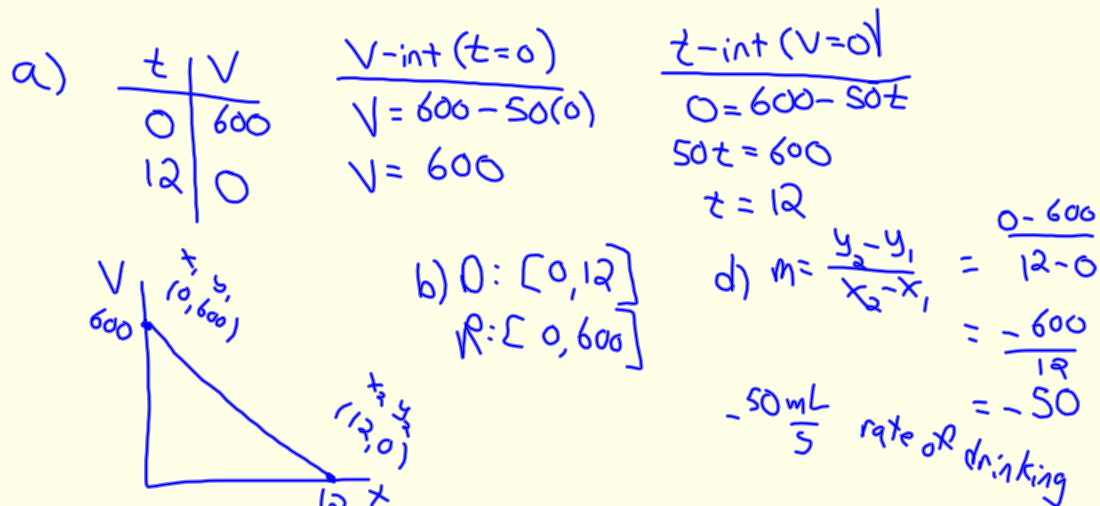 a)
t | V
0 | 600
12 | 0
V-int (t=0)
V = 600 - 50(0)
V = 600
t-int (V=0)
0 = 600 - 50t
50t = 600
t = 12
V
600
x₁ y₁
(0, 600)
x₂ y₂
(12, 0)
12
b) D: [0, 12]
R: [0, 600]
d) m = (y₂ - y₁)/(x₂ - x₁) = (0 - 600)/(12 - 0)
= -600/12
= -50
-50 mL/s rate of drinking